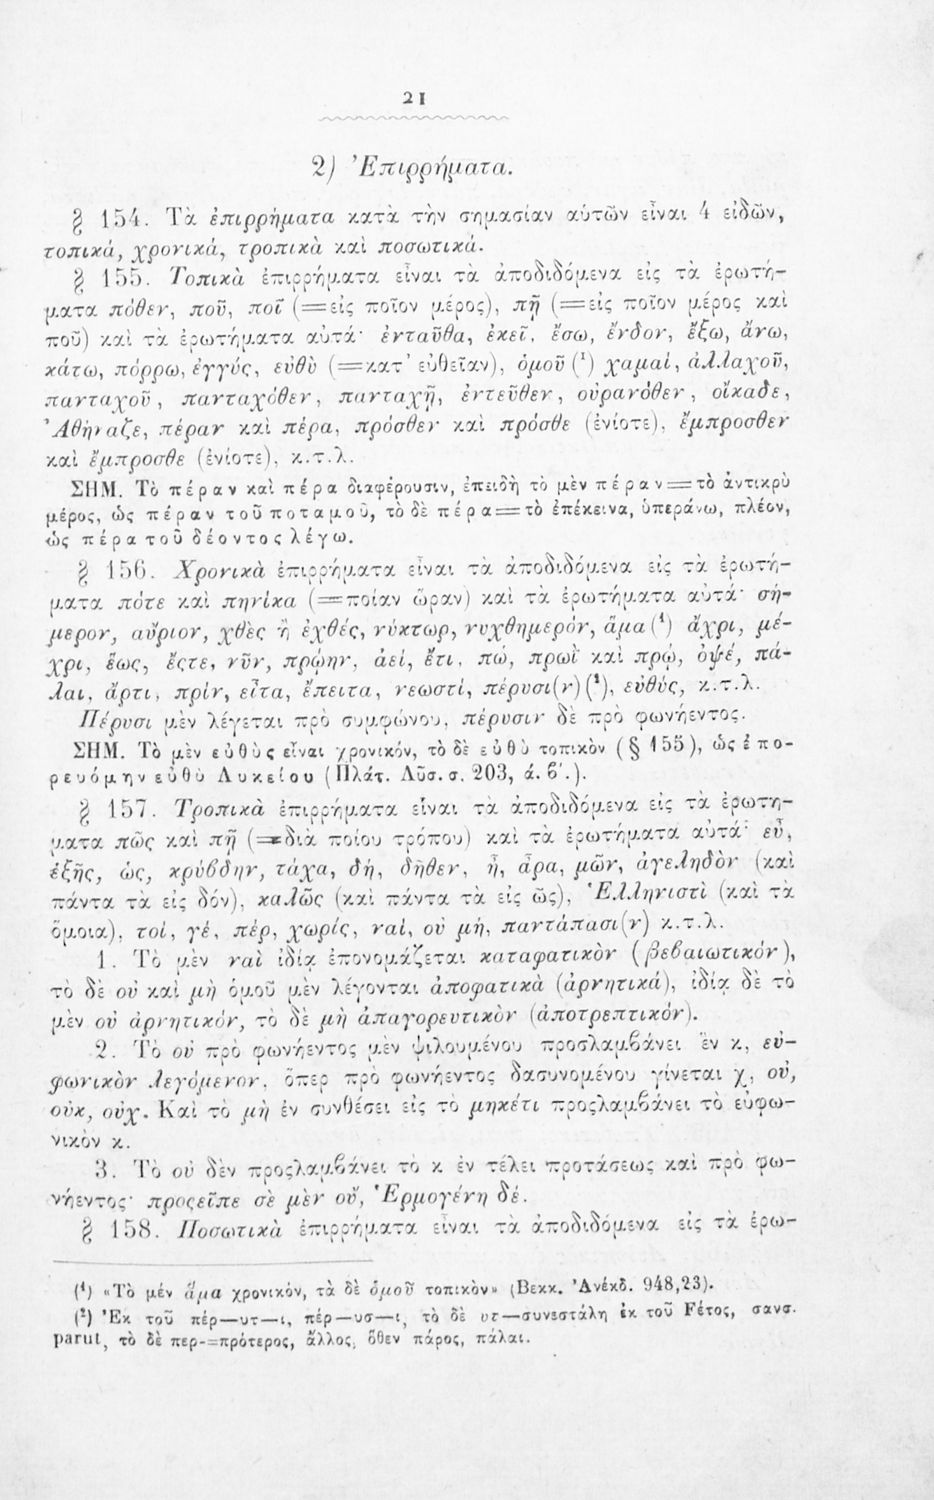 21
2) Ἐπιρρήματα.
§ 154. Τὰ ἐπιρρήματα κατὰ τὴν σημασίαν αὐτῶν εἶναι 4 εἰδῶν,
τοπικά, χρονικά, τροπικὰ καὶ ποσωτικά.
§ 155. Τοπικὰ ἐπιρρήματα εἶναι τὰ ἀποδιδόμενα εἰς τὰ ἐρωτή-
ματα πόθεν, ποῦ, ποῖ (=εἰς ποῖον μέρος), πῇ (=εἰς ποῖον μέρος καὶ
ποῦ) καὶ τὰ ἐρωτήματα αὐτά· ἐνταῦθα, ἐκεῖ, ἔσω, ἔνδον, ἔξω, ἄνω,
κάτω, πόρρω, ἐγγύς, εὐθὺ (=κατ᾽ εὐθεῖαν), ὁμοῦ (¹) χαμαί, ἀλλαχοῦ,
πανταχοῦ, πανταχόθεν, πανταχῇ, ἐντεῦθεν, οὐρανόθεν, οἴκαδε,
Ἀθήναζε, πέραν καὶ πέρα, πρόσθεν καὶ πρόσθε (ἐνίοτε), ἔμπροσθεν
καὶ ἔμπροσθε (ἐνίοτε), κ.τ.λ.
ΣΗΜ. Τὸ πέραν καὶ πέρα διαφέρουσιν, ἐπειδὴ τὸ μὲν πέραν=τὸ ἀντικρὺ
μέρος, ὡς πέραν τοῦ ποταμοῦ, τὸ δὲ πέρα=τὸ ἐπέκεινα, ὑπεράνω, πλέον,
ὡς πέρα τοῦ δέοντος λέγω.
§ 156. Χρονικὰ ἐπιρρήματα εἶναι τὰ ἀποδιδόμενα εἰς τὰ ἐρωτή-
ματα πότε καὶ πηνίκα (=ποίαν ὥραν) καὶ τὰ ἐρωτήματα αὐτά· σή-
μερον, αὔριον, χθὲς ἢ ἐχθές, νύκτωρ, νυχθημερόν, ἅμα (¹) ἄχρι, μέ-
χρι, ἕως, ἔςτε, νῦν, πρώην, ἀεί, ἔτι, πώ, πρωῒ καὶ πρῴ, ὀψέ, πά-
λαι, ἄρτι, πρίν, εἶτα, ἔπειτα, νεωστί, πέρυσι(ν)(²), εὐθύς, κ.τ.λ.
Πέρυσι μὲν λέγεται πρὸ συμφώνου, πέρυσιν δὲ πρὸ φωνήεντος.
ΣΗΜ. Τὸ μὲν εὐθὺς εἶναι χρονικόν, τὸ δὲ εὐθὺ τοπικὸν (§ 155), ὡς ἐπο-
ρευόμην εὐθὺ Λυκείου (Πλάτ. Λῦσ. σ. 203, ά. β΄.).
§ 157. Τροπικὰ ἐπιρρήματα εἶναι τὰ ἀποδιδόμενα εἰς τὰ ἐρωτη-
ματα πῶς καὶ πῇ (=διὰ ποίου τρόπου) καὶ τὰ ἐρωτήματα αὐτά· εὖ,
ἑξῆς, ὡς, κρύβδην, τάχα, δή, δῆθεν, ἦ, ἆρα, μῶν, ἀγεληδὸν (καὶ
πάντα τὰ εἰς δόν), καλῶς (καὶ πάντα τὰ εἰς ῶς), Ἑλληνιστὶ (καὶ τὰ
ὅμοια), τοί, γέ, πέρ, χωρίς, ναί, οὐ μή, παντάπασι(ν) κ.τ.λ.
1. Τὸ μὲν ναὶ ἰδίᾳ ἐπονομάζεται καταφατικὸν (βεβαιωτικόν),
τὸ δὲ οὐ καὶ μὴ ὁμοῦ μὲν λέγονται ἀποφατικὰ (ἀρνητικά), ἰδίᾳ δὲ τὸ
μὲν οὐ ἀρνητικόν, τὸ δὲ μὴ ἀπαγορευτικὸν (ἀποτρεπτικόν).
2. Τὸ οὐ πρὸ φωνήεντος μὲν ψιλουμένου προσλαμβάνει ἓν κ, εὐ-
φωνικὸν λεγόμενον, ὅπερ πρὸ φωνήεντος δασυνομένου γίνεται χ, οὐ,
οὐκ, οὐχ. Καὶ τὸ μὴ ἐν συνθέσει εἰς τὸ μηκέτι προςλαμβάνει τὸ εὐφω-
νικὸν κ.
3. Τὸ οὐ δὲν προςλαμβάνει τὸ κ ἐν τέλει προτάσεως καὶ πρὸ φω-
νήεντος· προςεῖπε σὲ μὲν οὔ, Ἑρμογένη δέ.
§ 158. Ποσωτικὰ ἐπιρρήματα εἶναι τὰ ἀποδιδόμενα εἰς τὰ ἐρω-
(¹) «Τὸ μέν ἅμα χρονικόν, τὰ δὲ ὁμοῦ τοπικὸν» (Βεκκ. Ἀνέκδ. 948,23).
(²) Ἐκ τοῦ πέρ—υτ—ι, πέρ—υσ—ι, τὸ δὲ υτ—συνεστάλη ἐκ τοῦ Fέτος, σανσ.
parut, τὸ δὲ περ-=πρότερος, ἄλλος, ὅθεν πάρος, πάλαι.